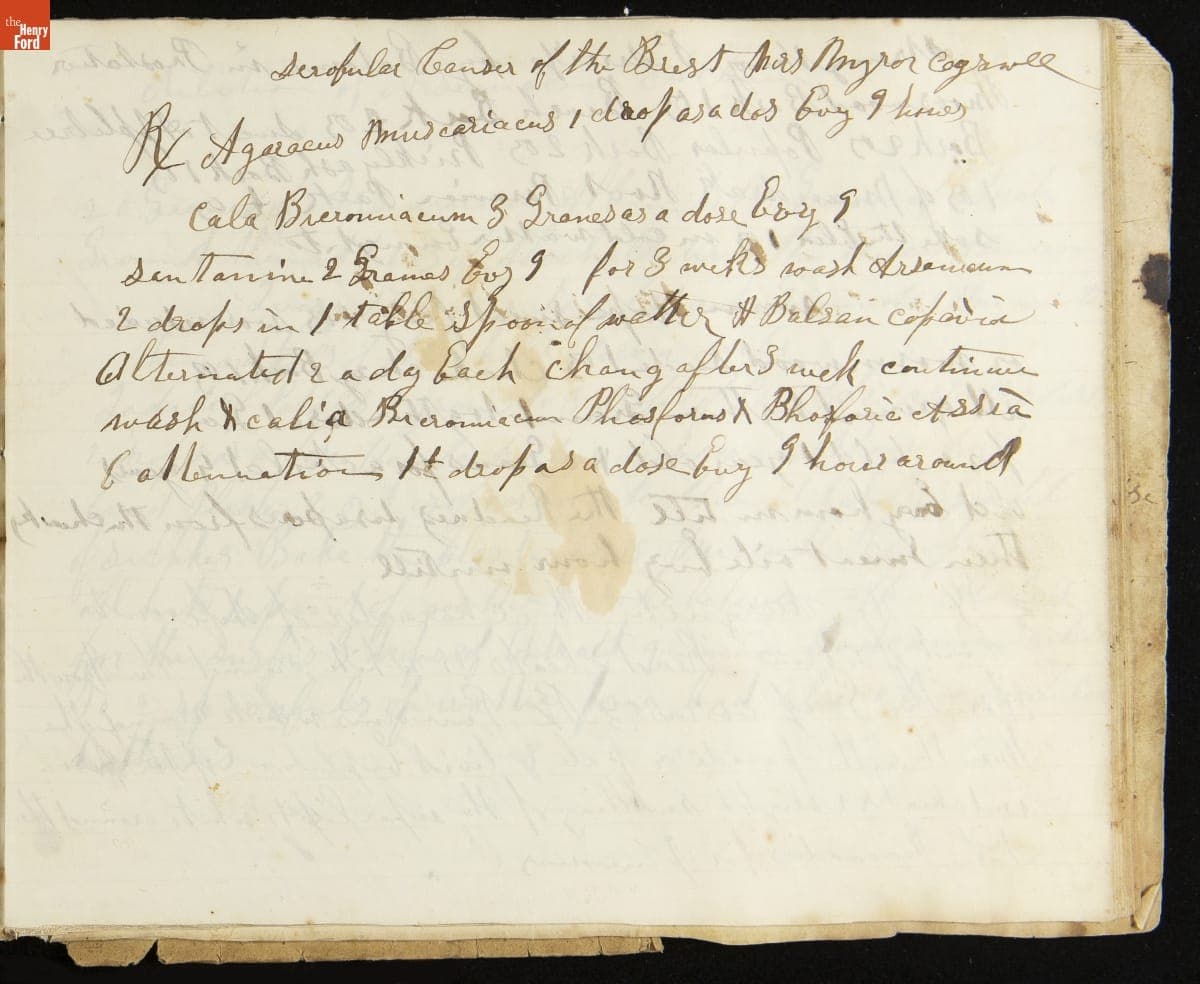 the Henry Ford
Scrofular Canser of the Brest Mrs Myror Cogswell
Rx Agaracus Muscariacus 1 drop as a dos Evry 9 houes
Cala Bicromiacum 3 Granes as a dose Evry 9
Santanine 2 Graines Evy 9 for 3 weks wash Arsenicum
2 drops in 1 table Spoon of watter & Balsan copavia
Alternated 2 a day Each chang after 3 wek continue
wash & calia Bicromiacum Phosforus & Bhosforic Assia
6 attenuation 1t drop as a dose Evry 9 hour around